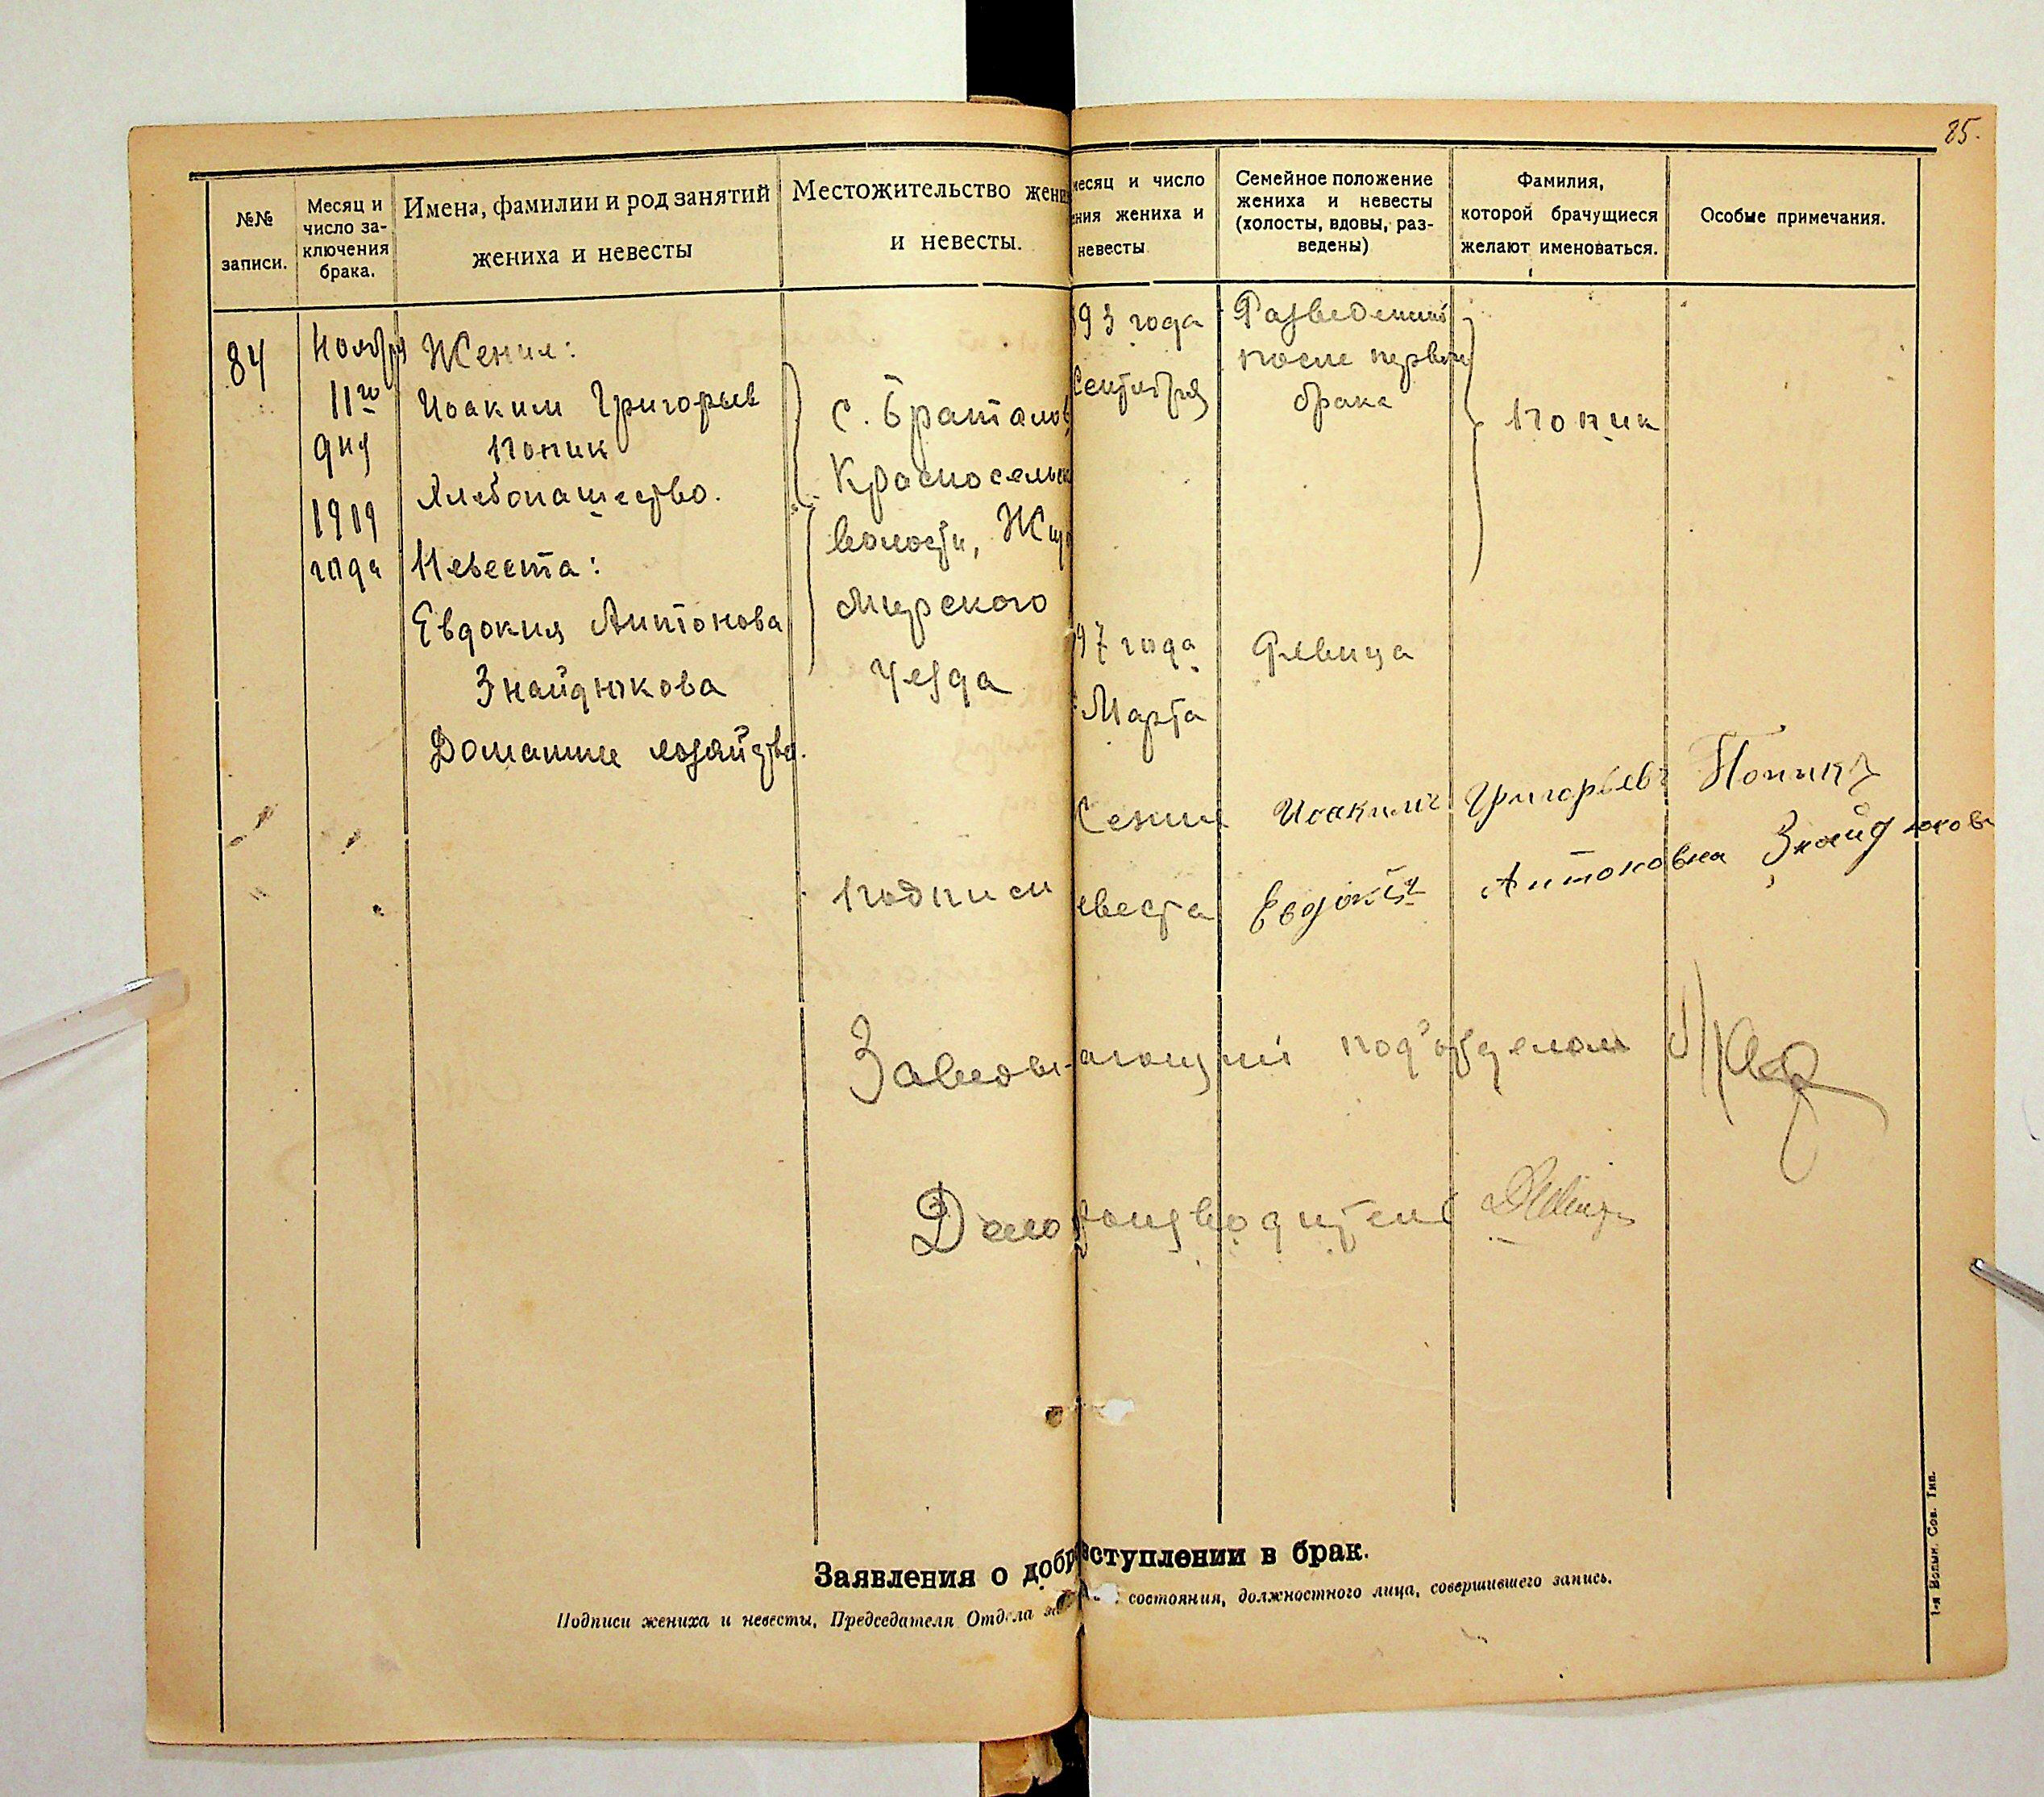 85.
№№
записи.
Месяц и
число за-
ключения
брака.
Имена, фамилии и род занятий
жениха и невесты
Местожительство жени
и невесты.
месяц и число
ния жениха и
невесты
Семейное положение
жениха и невесты
(холосты, вдовы, раз-
ведены)
Фамилия,
которой брачущиеся
желают именоваться.
Особые примечания.
84
Ноября
11го
дня
1919
года
Жених:
Иоаким Григорьев
Попик
Хлебопашество.
Невеста:
Евдокия Антонова
Знайдюкова
Домашнее хозяйство.
с. Браталов
Красносельск
волости, Жит
Мирского
Уезда
93 года
Сентября
97 года
Марта
Разведенный
после первого
брака
Девица
Попик
Подписи
Иоакимъ Григорьевъ Попикъ
евеста Евдокія Антоновна Знайдюкова
Заведывающий под'отделом
Делопроизводитель
Заявления о добр вступлении в брак.
Подписи жениха и невесты, Председателя Отдела за состояния, должностного лица, совершившего запись.
1-я Волын. Сов. Тип.